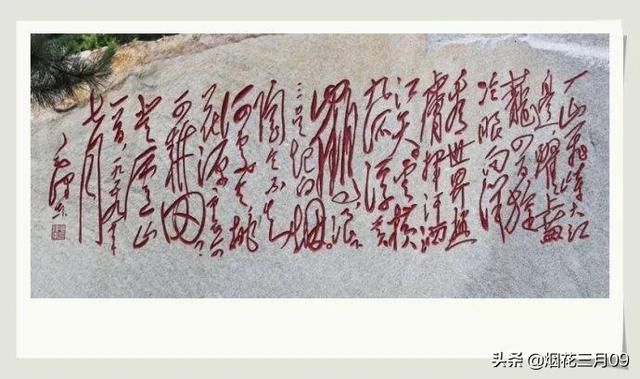 一山飛峙大江
邊躍上葱
蘢四百旋
冷眼向洋
看世界熱
膚揮汗洒
江天雲横
九派浮黄
鶴浪下
三吴起白烟
陶令不知
何處去桃
花源里
可耕田
登廬山
一首一九五九年
七月
毛澤東
头条 @烟花三月09